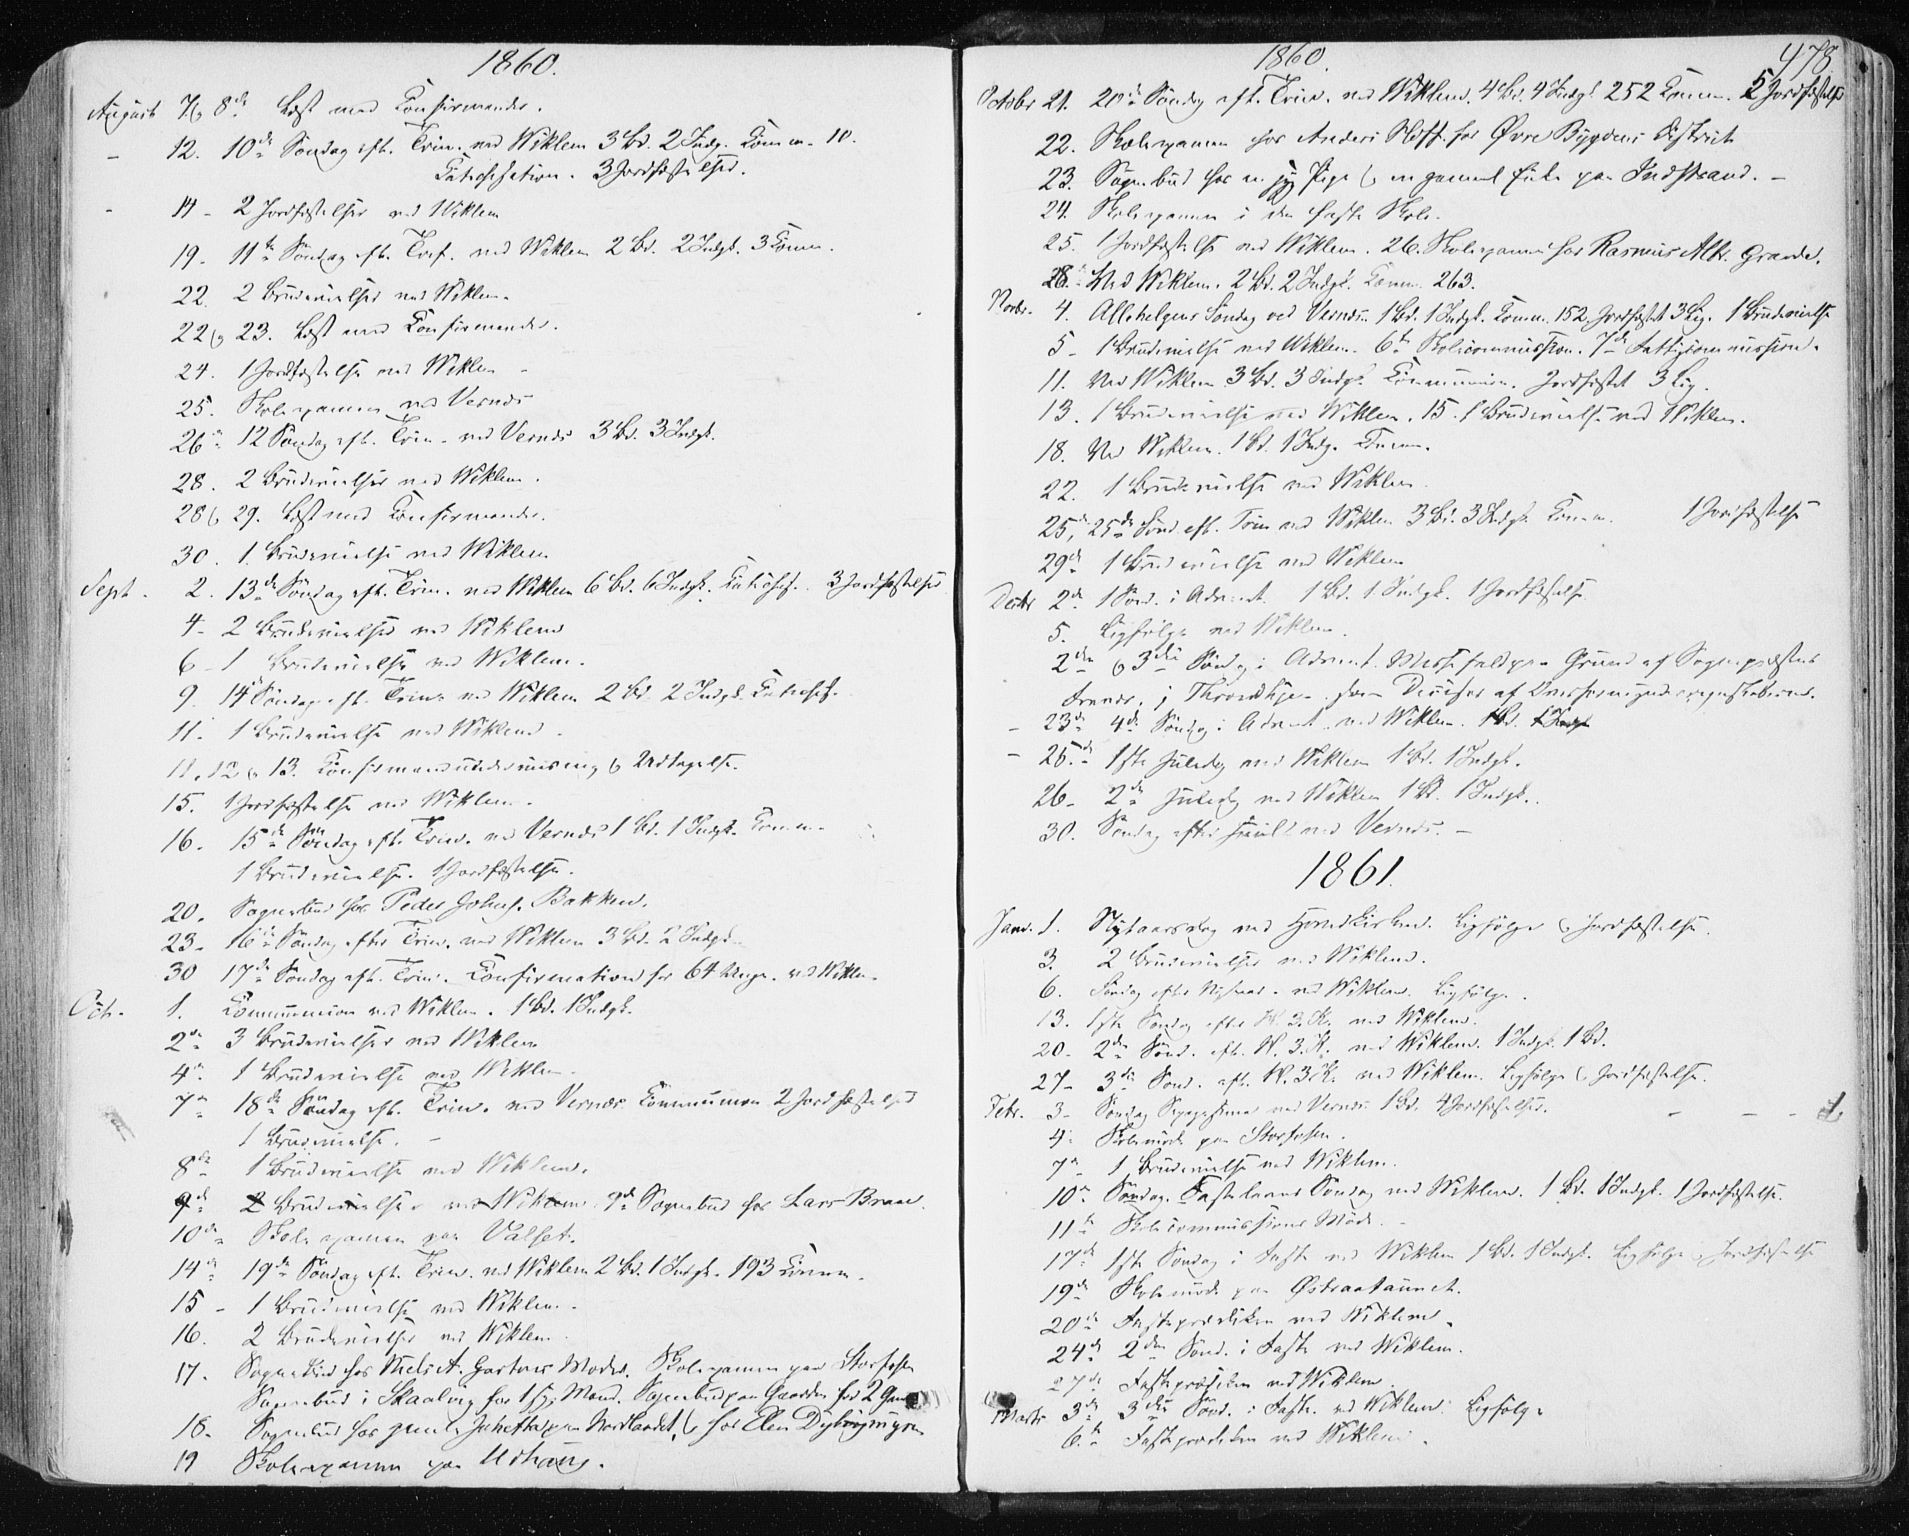 1860.
August 7 & 8de Læst med Confirmander.
– 12. 10de Søndag eft. Trin. ved Wiklem 3 Bd. 2 Indg. Comm. 10.
Catechisation. 3 Jordfæstelser.
- 14 - 2 Jordfæstelser ved Wiklem
19. 11te Søndag eft. Tref. ved Wiklem 2 Bd. 2 Indgk. 3 Comm.
22. 2 Brudevielser ved Wiklem.
22 & 23. Læst med Confirmander.
24. 1 Jordfæstelse ved Wiklem -
25. Skoleexamen ved Vernes
26de 12 Søndag eft. Trin. ved Vernes 3 Bd. 3 Indgk.
28. 2 Brudevielser ved Wiklem.
28 & 29. Læst med Confirmander.
30. 1 Brudevielse ved Wiklem
Sept. 2. 13de Søndag eft. Trin. ved Wiklem 6 Bd. 6 Indgk. Catechis. 3 Jordfæstelser
4 - 2 Brudevielser ved Wiklem
6 - 1 Brudevielse ved Wiklem.
9. 14de Søndag eft. Trin. ved Wiklem 2 Bd. 2 Indgk. Catechis.
11 - 1 Brudevielse ved Wiklem.
11, 12 & 13. Confirmandundervisning & Udtagelse.
15. 1 Jordfæstelse ved Wiklem.
16. 15de Søndag eft. Trin. ved Vernes 1 Bd. 1 Indgk. Comm.
1 Brudevielse. 1 Jordfæstelse.
20. Sognebud hos Peder Johns. Bakken.
23 - 16de Søndag efter Trin. ved Wiklem 3 Bd. 2 Indgk.
30 17de Søndag eft. Trin. Confirmation for 64 Unge. ved Wiklem.
Oct. 1. Communion ved Wiklem. 1 Bd. 1 Indgk.
2de 3 Brudevielser ved Wiklem
4de 1 Brudevielse ved Wiklem.
7de 18de Søndag eft. Trin. ved Vernes. Communion 2 Jordfæstelser
1 Brudevielse. -
8de 1 Brudevielse ved Wiklem.
9de 2 Brudevielser ved Wiklem. 9de Sognebud hos Lars Braae.
10de Skoleexamen paa Valset.
14de 19de Søndag eft. Trin. ved Wiklem 2 Bd. 1 Indgk. 193 Comm.
15 - 1 Brudevielse ved Wiklem.
16. 2 Brudevielser ved Wiklem
17. Sognebud hos Niels A. Gartners Moder. Skoleexamen paa Storfosen
Sognebud i Skaaling for 1 syg Mand. Sognebud paa for 2
18. Sognebud hos Jahetta paa Nordlandet, & hos Elen Dybvigmyren
19 Skoleexamen paa Uthaug.
1860.
478
October 21. 20de Søndag eft. Trin. ved Wiklem. 4 Bd. 4 Indgk. 252 Comm. 5 Jordfæstelser
22. Skoleexamen hos Anders Hoff. for Øvre Bygdens District
23. Sognebud hos en syg Pige & en gammel Enke paa Indstrand. -
24. Skoleexamen i den faste Skole.
25. 1 Jordfæstelse ved Wiklem. 26. Skoleexamen hos Rasmus Albr. Grande.
28. Ved Wiklem. 2 Bd. 2 Indgk. Comm. 263.
Novbr. 4. Allehelgens Søndag ved Vernes. 1 Bd. 1 Indgk. Comm. 152. Jordfæstet 3 Lig. 1 Brudevielse
5 - 1 Brudevielse ved Wiklem. 6te Skolecommission. 7de Fattigcommission.
11. Ved Wiklem 3 Bd. 3 Indgk. Communion. Jordfæstet 3 Lig.
13. 1 Brudevielse ved Wiklem. 15. 1 Brudevielse ved Wiklem.
18. Ved Wiklem. 1 Bd. 1 Indg. Comm.
22. 1 Brudevielse ved Wiklem
25de, 25de Sønd. eft. Trin ved Wiklem 3 Bd. 3 Indgk. Comm. 1 Jordfæstelse
29de 1 Brudevielse ved Wiklem
Decbr 2de 1 Sønd. i Advent. 1 Bd. 1 Indgk. 1 Jordfæstelse
5. Ligfølge ved Wiklem.
2den & 3die Søndag i Advent. Messefald paa Grund af Sognepræstens
i Throndhjem Decision af Overformynderregnskaberne.
- 23de 4de Søndag i Advent ved Wiklem. 1 Bd. 1 Indgk
- 25de 1ste Juledag ved Wiklem 1 Bd. 1 Indgk.
26 - 2den Juledag ved Wiklem 1 Bd. 1 Indgk.
30. Søndag efter Juul ved Vernes. -
1861.
Janr. 1. Nytaarsdag ved Hovedkirken. Ligfølge & Jordfæstelse.
3. 2 Brudevielser ved Wiklem.
6. Søndag efter Nytaar. ved Wiklem. Ligfølge.
13. 1ste Søndag efter H. 3. K. ved Wiklem.
20 - 2den Sønd. eft. H. 3. K. ved Wiklem. 1 Indgk. 1 Bd.
27 - 3die Sønd. eft. H. 3 K. ved Wiklem. Ligfølge & Jordfæstelse.
Febr. 3 - Søndag ved Vernes. 1 Bd. 4 Jordfæstelser. - - - 1.
4 - Skolemøde paa Storfosen.
7de 1 Brudevielse ved Wiklem.
10de Søndag. Fastelavns Søndag ved Wiklem. 1 Bd. 1 Indgk. 1 Jordfæstelse.
11te Skolecommissions Møde. -
17de 1ste Søndag i Faste ved Wiklem 1 Bd. 1 Indgk. Ligfølge & Jordfæstelse
19de Skolemøde paa Østraataunet.
20de Fasteprædiken ved Wiklem.
24de 2den Sønd. i Faste ved Wiklem.
27de Fasteprædiken ved Wiklem.
Marts 3de 3die Sønd. i Faste. ved Wiklem. Ligfølge
6te Fasteprædiken ved Wiklem.